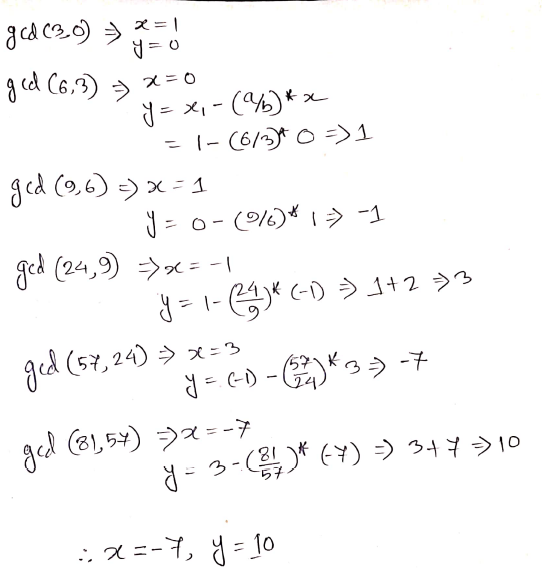 gcd(3,0) ⇒ x=1
y=0
gcd(6,3) ⇒ x=0
y= x₁ - (a/b)* x
= 1-(6/3)* 0 ⇒ 1
gcd (9,6) ⇒ x=1
y= 0-(9/6)* 1 ⇒ -1
gcd (24,9) ⇒ x=-1
y= 1-(24/9)* (-1) ⇒ 1+2 ⇒ 3
gcd (57,24) ⇒ x=3
y= (-1) - (57/24)* 3 ⇒ -7
gcd (81,57) ⇒ x=-7
y= 3-(81/57)* (-7) ⇒ 3+7 ⇒ 10
∴ x=-7, y=10